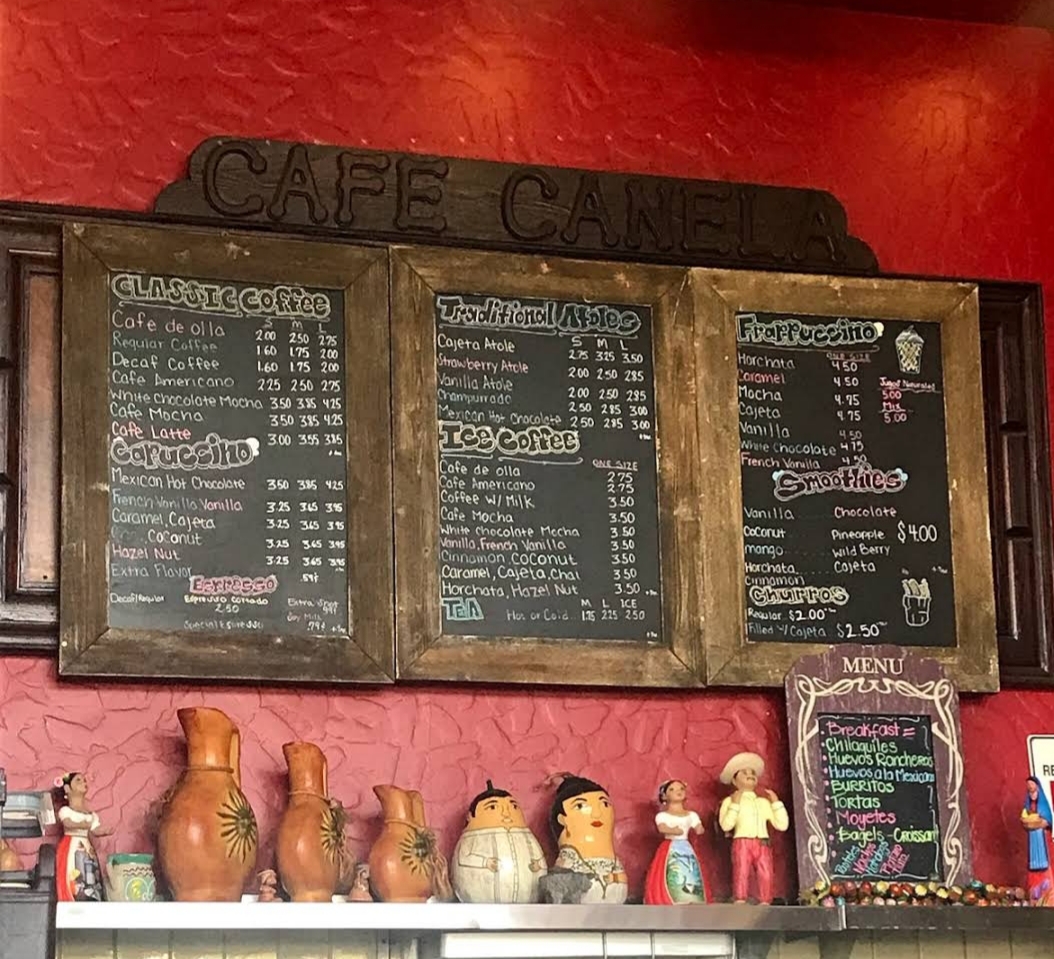 CAFE CANELA
CLASSIC Coffee
S M L
Cafe de olla 2.00 2.50 2.75
Regular Coffee 1.60 1.75 2.00
Decaf Coffee 1.60 1.75 2.00
Cafe Americano 2.25 2.50 2.75
White Chocolate Mocha 3.50 3.85 4.25
Cafe Mocha 3.50 3.85 4.25
Cafe Latte 3.00 3.55 3.85
Capuccino
Mexican Hot Chocolate 3.50 3.85 4.25
French Vanilla Vanilla 3.25 3.65 3.95
Caramel, Cajeta 3.25 3.65 3.95
Coconut 3.25 3.65 3.95
Hazel Nut 3.25 3.65 3.95
Extra Flavor .59¢
Espresso
Decaf/Regular Espresso Cortado
2.50
Extra Shot
Soy Milk
.79¢
Traditional Atoles
S M L
Cajeta Atole 2.75 3.25 3.50
Strawberry Atole 2.00 2.50 2.85
Vanilla Atole 2.00 2.50 2.85
Champurrado 2.50 2.85 3.00
Mexican Hot Chocolate 2.50 2.85 3.00
Ice Coffee
ONE SIZE
Cafe de olla 2.75
Cafe Americano 2.75
Coffee W/ Milk 3.50
Cafe Mocha 3.50
White Chocolate Mocha 3.50
Vanilla, French Vanilla 3.50
Cinnamon, Coconut 3.50
Caramel, Cajeta, Chai 3.50
Horchata, Hazel Nut 3.50
TEA
M L ICE
Hot or Cold 1.75 2.25 2.50
Frappuccino
ONE SIZE
Horchata 4.50
Caramel 4.50
Mocha 4.75
Cajeta 4.75
Vanilla 4.50
White Chocolate 4.75
French Vanilla 4.50
Jugos Naturales
5.00
Mix
5.00
Smoothies
Vanilla Chocolate
Coconut Pineapple $4.00
mango Wild Berry
Horchata Cajeta
Cinnamon
Churros
Regular $2.00
Filled W/ Cajeta $2.50
MENU
Breakfast =
• Chilaquiles
• Huevos Rancheros
• Huevos a la Mexican
• BURRITOS
• TORTAS
• Moyetes
• Bagels - Croissan
RE